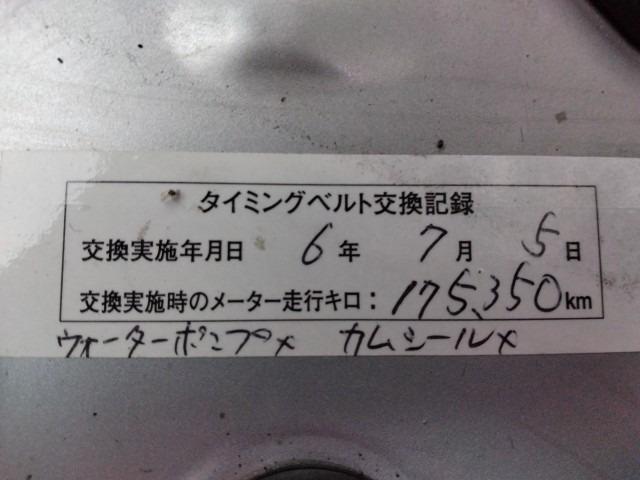 タイミングベルト交換記録
交換実施年月日 6年 7月 5日
交換実施時のメーター走行キロ：175,350km
ウォーターポンプ× カムシール×